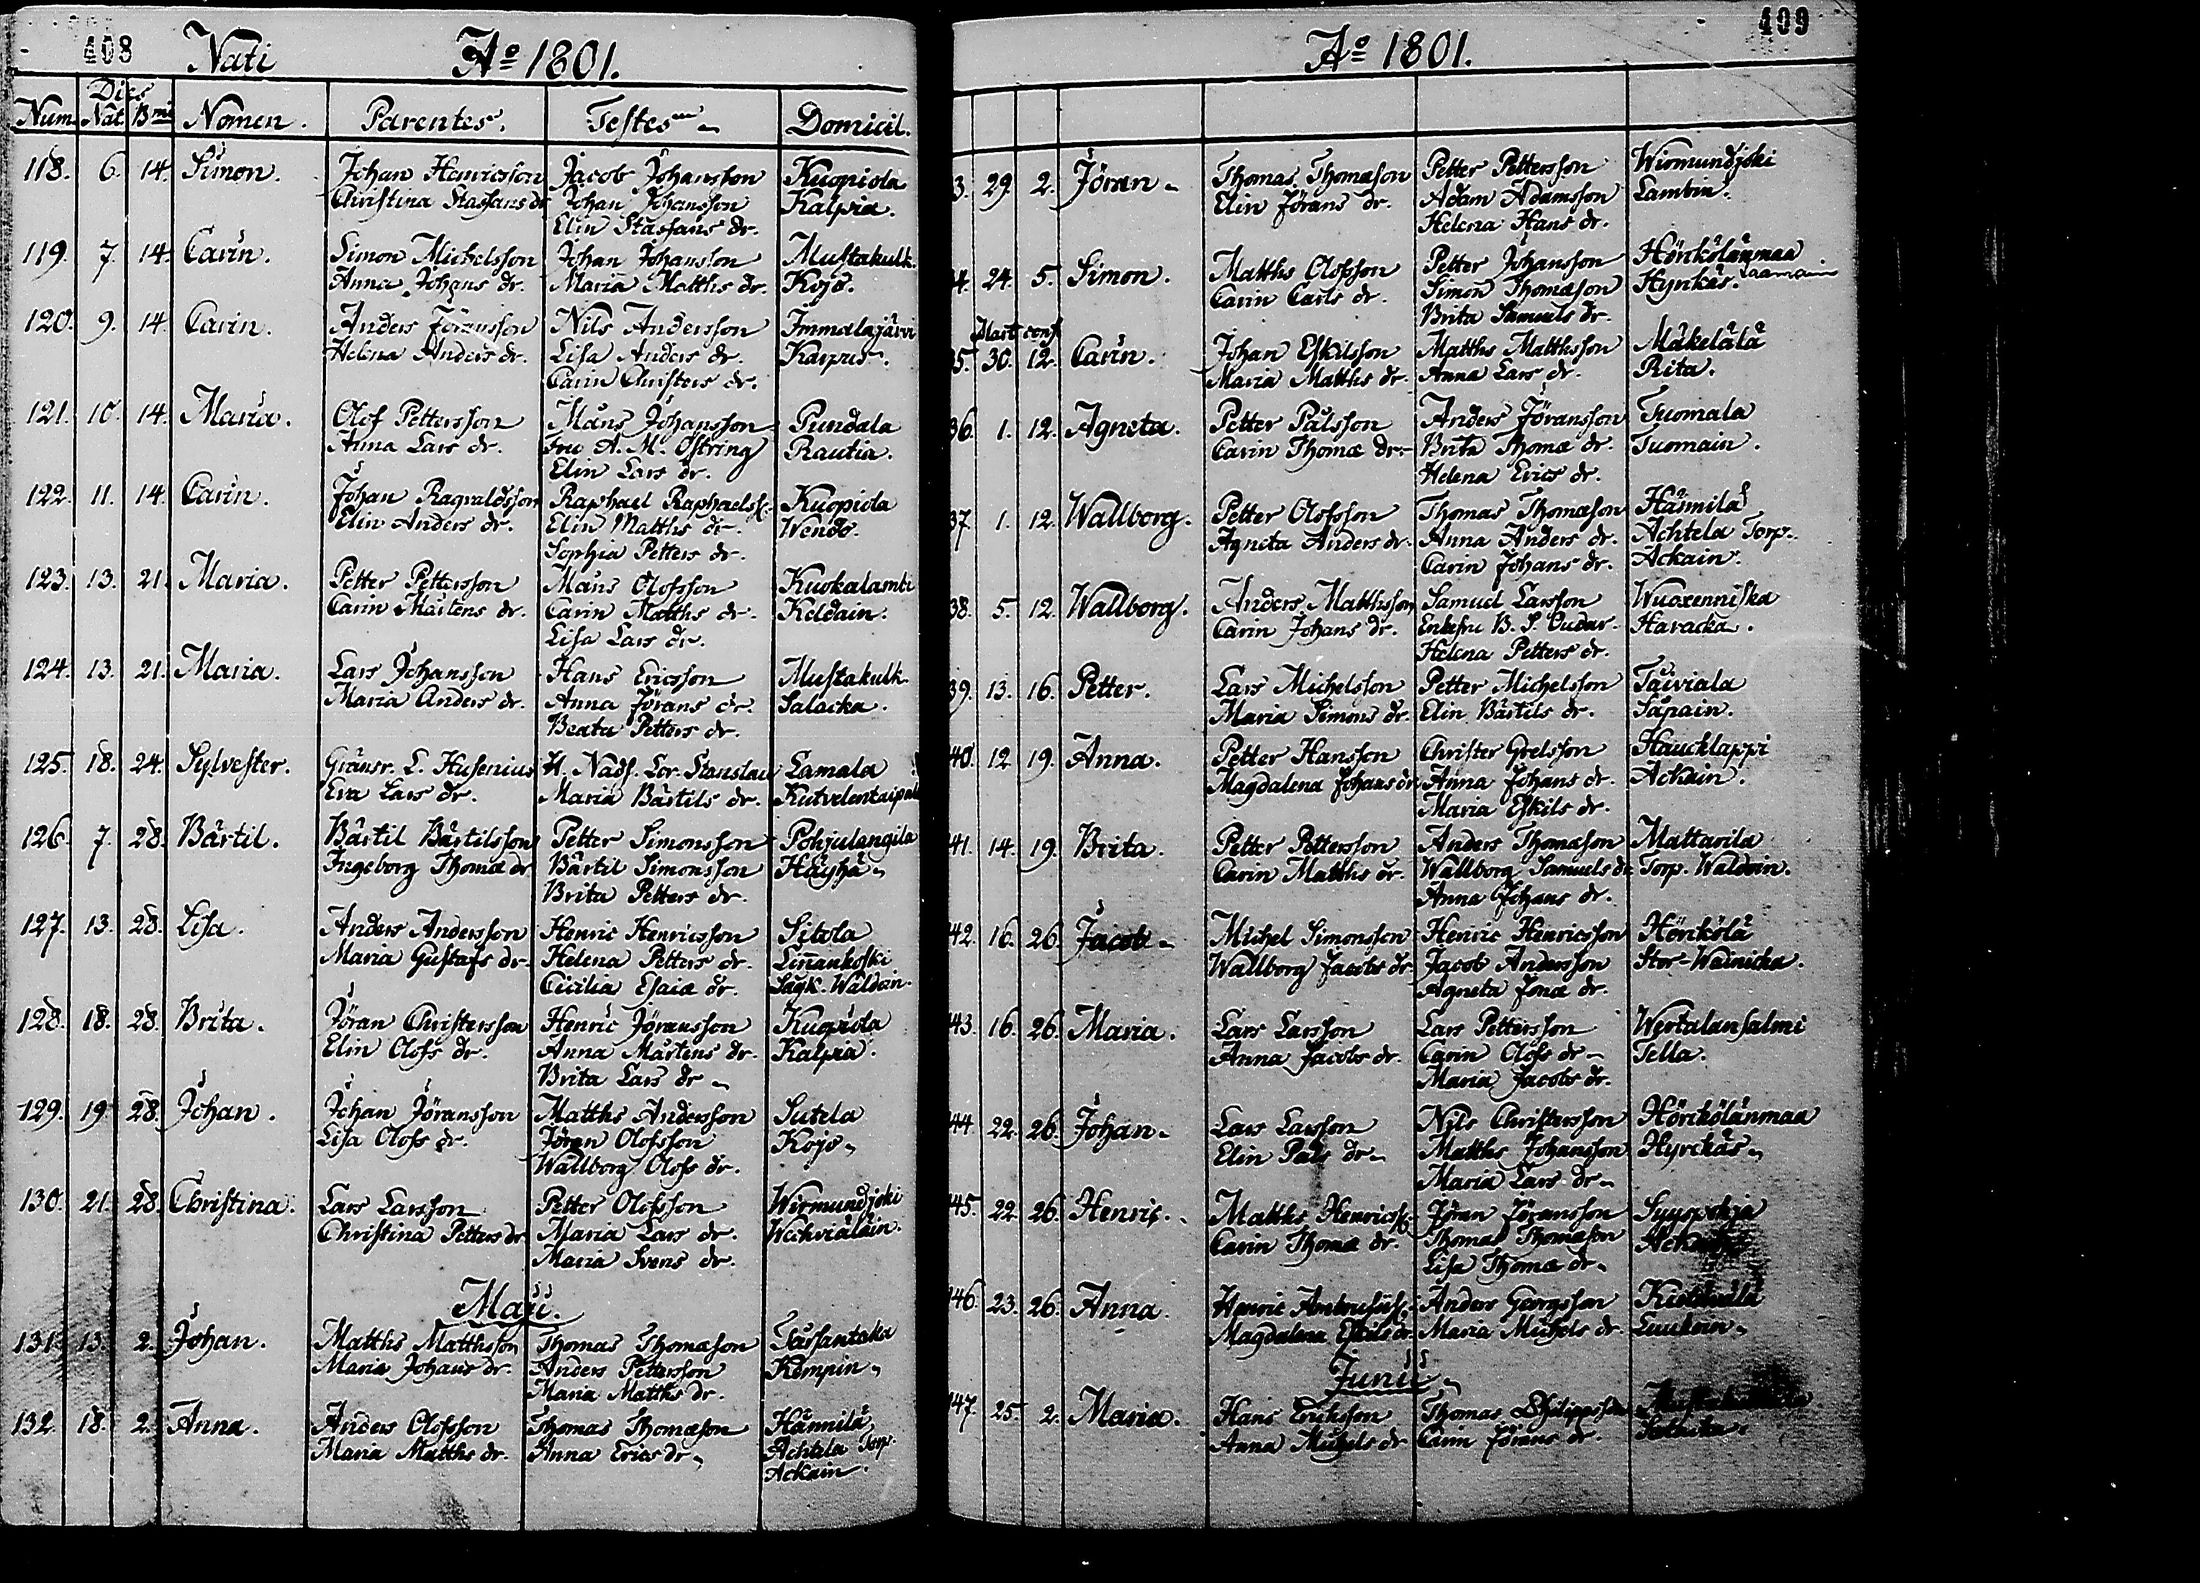 408 Nati Aº 1801.
Dies
Num. Nat. Bmi Nomen. Parentes. Testes Domicil.
118. 6. 14. Simon. Johan Henricsson Jacob Johansson Kuopiola
Christina Staffans dr Johan Johansson Kalpia.
Elin Staffans dr.
119. 7. 14. Carin. Simon Michelsson Johan Johansson Mustakulk.
Anna Johans dr. Maria Matths dr. Kojo.
120. 9. 14. Carin. Anders Jöransson Nils Andersson Immalajärvi
Helena Anders dr. Lisa Anders dr. Karpus.
Carin Christers dr.
121. 10. 14. Maria. Olof Pettersson Måns Johansson Pundala
Anna Lars dr. Fru A. M. Östring Rautia.
Elin Lars dr.
122. 11. 14. Carin. Johan Ragvaldsson Raphael Raphaelss. Kuopiola
Elin Anders dr. Elin Matths dr. Wendo.
Sophia Petters dr.
123. 13. 21. Maria. Petter Pettersson Måns Olofsson Kuokalambi
Carin Mårtens dr. Carin Matths dr. Keldain.
Lisa Lars dr.
124. 13. 21. Maria. Lars Johansson Hans Ericsson Mustakulk.
Maria Anders dr. Anna Jörans dr. Salacka.
Beata Petters dr.
125. 18. 24. Sylvester. Gränsr. L. Husenius Lamala
Eva Lars dr. Maria Bärtils dr.
126. 7. 28. Bärtil. Bärtil Bärtilsson Petter Simonsson Pohjulangila
Ingeborg Thomæ dr Bärtil Simonsson Häyhä
Brita Petters dr.
127. 13. 28. Lisa. Anders Andersson Henric Henricsson Sitola
Maria Gustafs dr. Helena Petters dr. Linnankoski
Cicilia Esaiæ dr. Waldoin.
128. 18. 28. Brita. Jöran Christersson Henric Jöransson Kuopiola
Elin Olofs dr. Anna Mårtens dr. Kalpia.
Brita Lars dr
129. 19. 28. Johan. Johan Jöransson Matths Andersson Sutela
Lisa Olofs dr. Jöran Olofsson Kojo
Wallborg Olofs dr.
130. 21. 28. Christina. Lars Larsson Petter Olofsson Wirmundjoki
Christina Petters dr Maria Lars dr. Wechviäläin.
Maria Svens dr.
Maji.
131. 13. 2. Johan. Matths Matthsson Thomas Thomæson
Maria Johans dr. Anders Pettersson Kempin
Maria Matths dr.
132. 18. 2. Anna. Anders Olofsson Thomas Thomæson Hännilä
Maria Matths dr. Anna Erics dr Achtela Torp.
Ackain.
Aº 1801. 409
3. 29. 2. Jöran Thomas Thomæson Petter Pettersson Wirmundjoki
Elin Jörans dr. Adam Adamsson Lambin.
Helena Hans dr.
34. 24. 5. Simon. Matths Olofsson Petter Johansson Hörikölänmaa
Carin Carls dr. Simon Thomæson Hyrckäs.
Brita Samuels dr.
35. 30. 12. Carin. Johan Eskilsson Matths Matthsson Mäkelälä
Maria Matths dr. Anna Lars dr. Rita.
36. 1. 12. Agneta. Petter Pålsson Anders Jöransson Tuomala
Carin Thomæ dr. Brita Thomæ dr. Tuomain.
Helena Erics dr.
37. 1. 12. Wallborg. Petter Olofsson Thomas Thomæson Hännilä
Agnita Anders dr. Anna Anders dr. Achtela Torp.
Carin Johans dr. Ackain.
38. 5. 12. Wallborg. Anders Matthsson Samuel Larsson Wuoxenniska
Carin Johans dr. Enkefru B. S. Haracka.
Helena Petters dr.
39. 13. 16. Petter. Lars Michelsson Petter Michelsson Täiviälä
Maria Simons dr. Elin Bärtils dr. Säpäin.
40. 12. 19. Anna. Petter Hansson Christer Haucklappi
Magdalena Johans dr Anna Johans dr. Ackain.
Maria Eskils dr.
41. 14. 19. Brita. Petter Pettersson Anders Thomæson Mattarila
Carin Matths dr. Wallborg Samuels dr. Torp. Waldoin.
Anna Johans dr.
42. 16. 26. Jacob Michel Simonsson Henric Henricsson Hörikölä
Wallborg Jacobs dr Jacob Andersson Stor-Wainicka.
Agneta Jonæ dr.
43. 16. 26. Maria. Lars Larsson Lars Pettersson Wirtalansalmi
Anna Jacobs dr. Carin Olofs dr Tella.
Maria Jacobs dr.
44. 22. 26. Johan Lars Larsson Nils Christersson Hörikölänmaa
Elin Påls dr Matths Johansson Hyrckäs
Maria Lars dr
45. 22. 26. Henric. Matths Henricss. Jöran Jöransson Syyspohja
Carin Thomæ dr. Thomas Thomæson
Lisa Thomæ dr
146. 23. 26. Anna. Henric Anders Georgsson
Magdalena Eskils dr. Maria Michels dr.
Junii
147. 25. 2. Maria. Hans Ericksson Thomas
Anna Michels dr Carin Jörans dr.